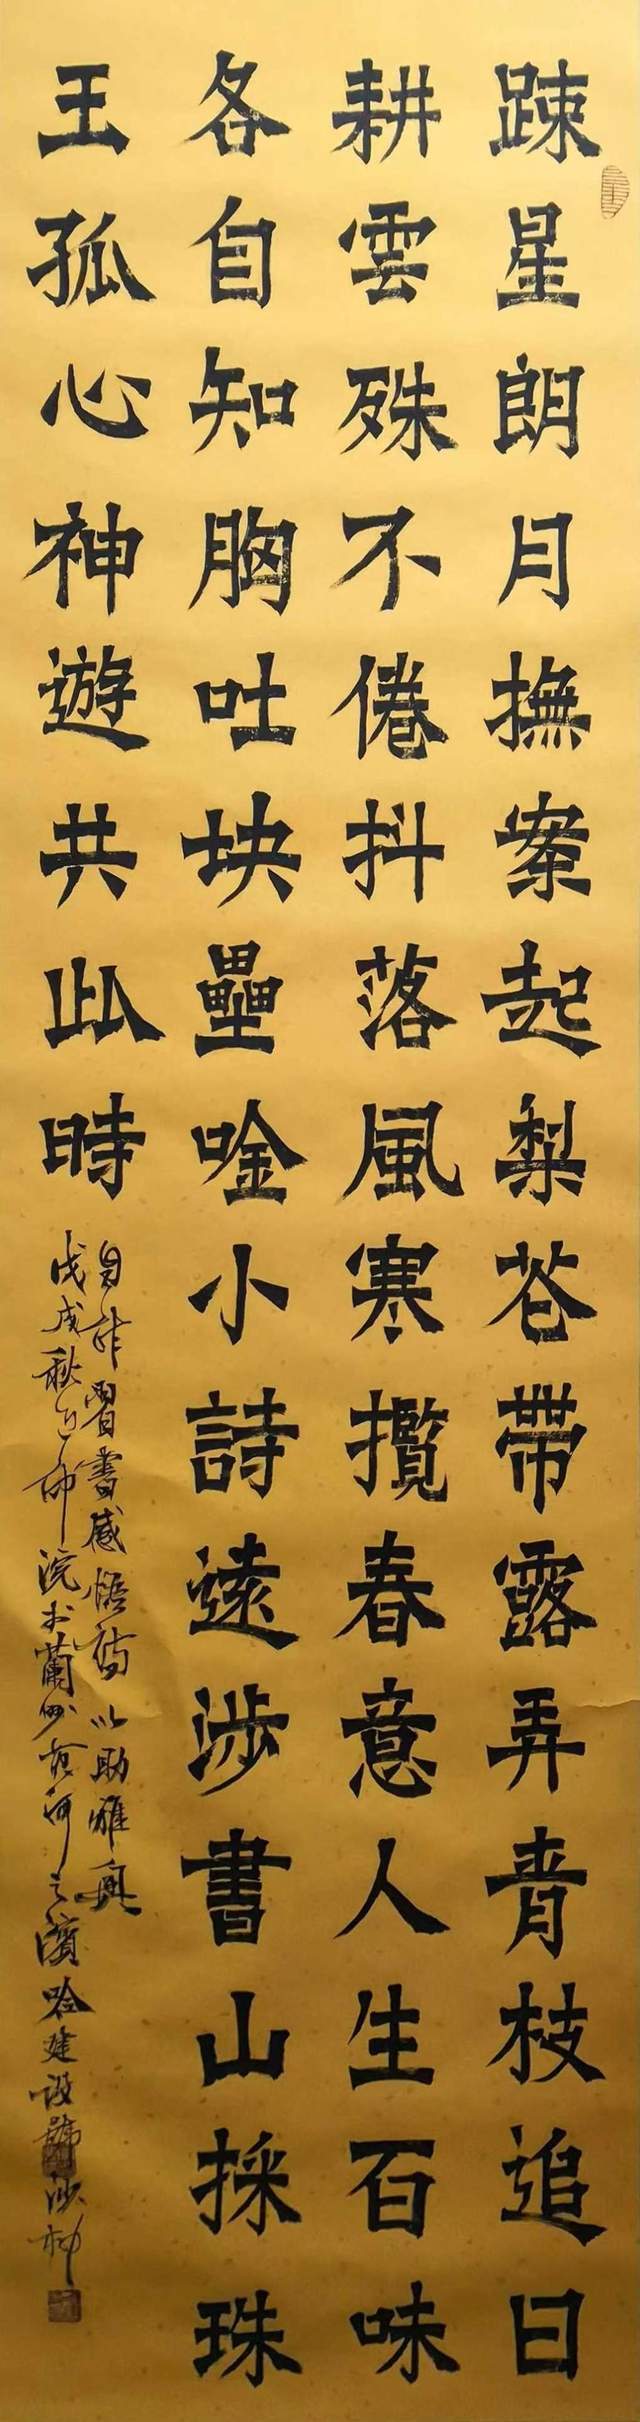 踈星朗月撫案起梨花帶露弄青枝追日
耕雲殊不倦抖落風寒攬春意人生百味
各自知胸吐块壘唫小詩遠涉書山採珠
王孤心神遊共此時
自作習書感悟詩以助雅興
戊戌秋浣於蘭州黃河之濱哈建設號沙柳